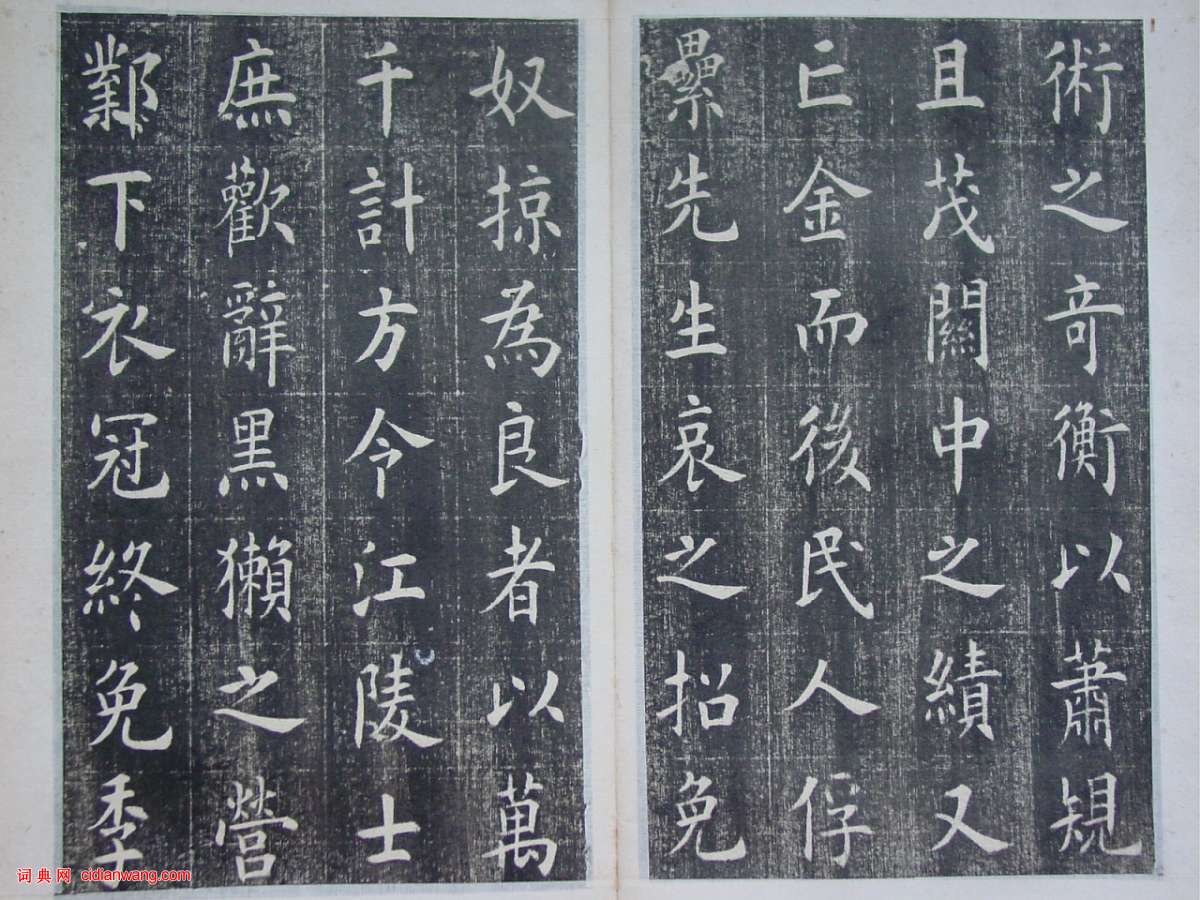 術之奇衡以蕭規
且茂關中之績又
亡金而後民人俘
纍先生哀之招免
奴掠為良者以萬
千計方今江陵士
庶歡辭黑獺之營
鄴下衣冠終免季
词典网 cidianwang.com